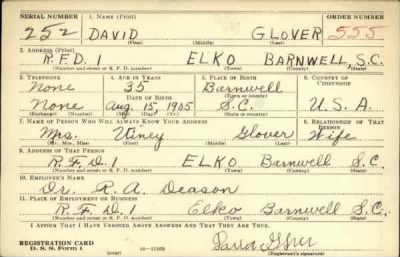 SERIAL NUMBER 1. NAME (Print) ORDER NUMBER
252 DAVID GLOVER 555
(First) (Middle) (Last)
2. ADDRESS (Print)
R.F.D. 1 ELKO BARNWELL, S.C.
(Number and street or R. F. D. number) (Town) (County) (State)
3. TELEPHONE 4. AGE IN YEARS 5. PLACE OF BIRTH 6. COUNTRY OF CITIZENSHIP
None 35 Barnwell
DATE OF BIRTH (Town or county)
None Aug. 15, 1905 S.C. U.S.A.
(Exchange) (Number) (Mo.) (Day) (Yr.) (State or country)
7. NAME OF PERSON WHO WILL ALWAYS KNOW YOUR ADDRESS 8. RELATIONSHIP OF THAT PERSON
Mrs. Viney Glover Wife
(Mr., Mrs., Miss) (First) (Middle) (Last)
9. ADDRESS OF THAT PERSON
R.F.D. 1 ELKO Barnwell S.C.
(Number and street or R. F. D. number) (Town) (County) (State)
10. EMPLOYER'S NAME
Dr. R. A. Deason
11. PLACE OF EMPLOYMENT OR BUSINESS
R.F.D. 1 Elko Barnwell S.C.
(Number and street or R. F. D. number) (Town) (County) (State)
I AFFIRM THAT I HAVE VERIFIED ABOVE ANSWERS AND THAT THEY ARE TRUE.
REGISTRATION CARD
D. S. S. Form 1 (Registrant's signature)